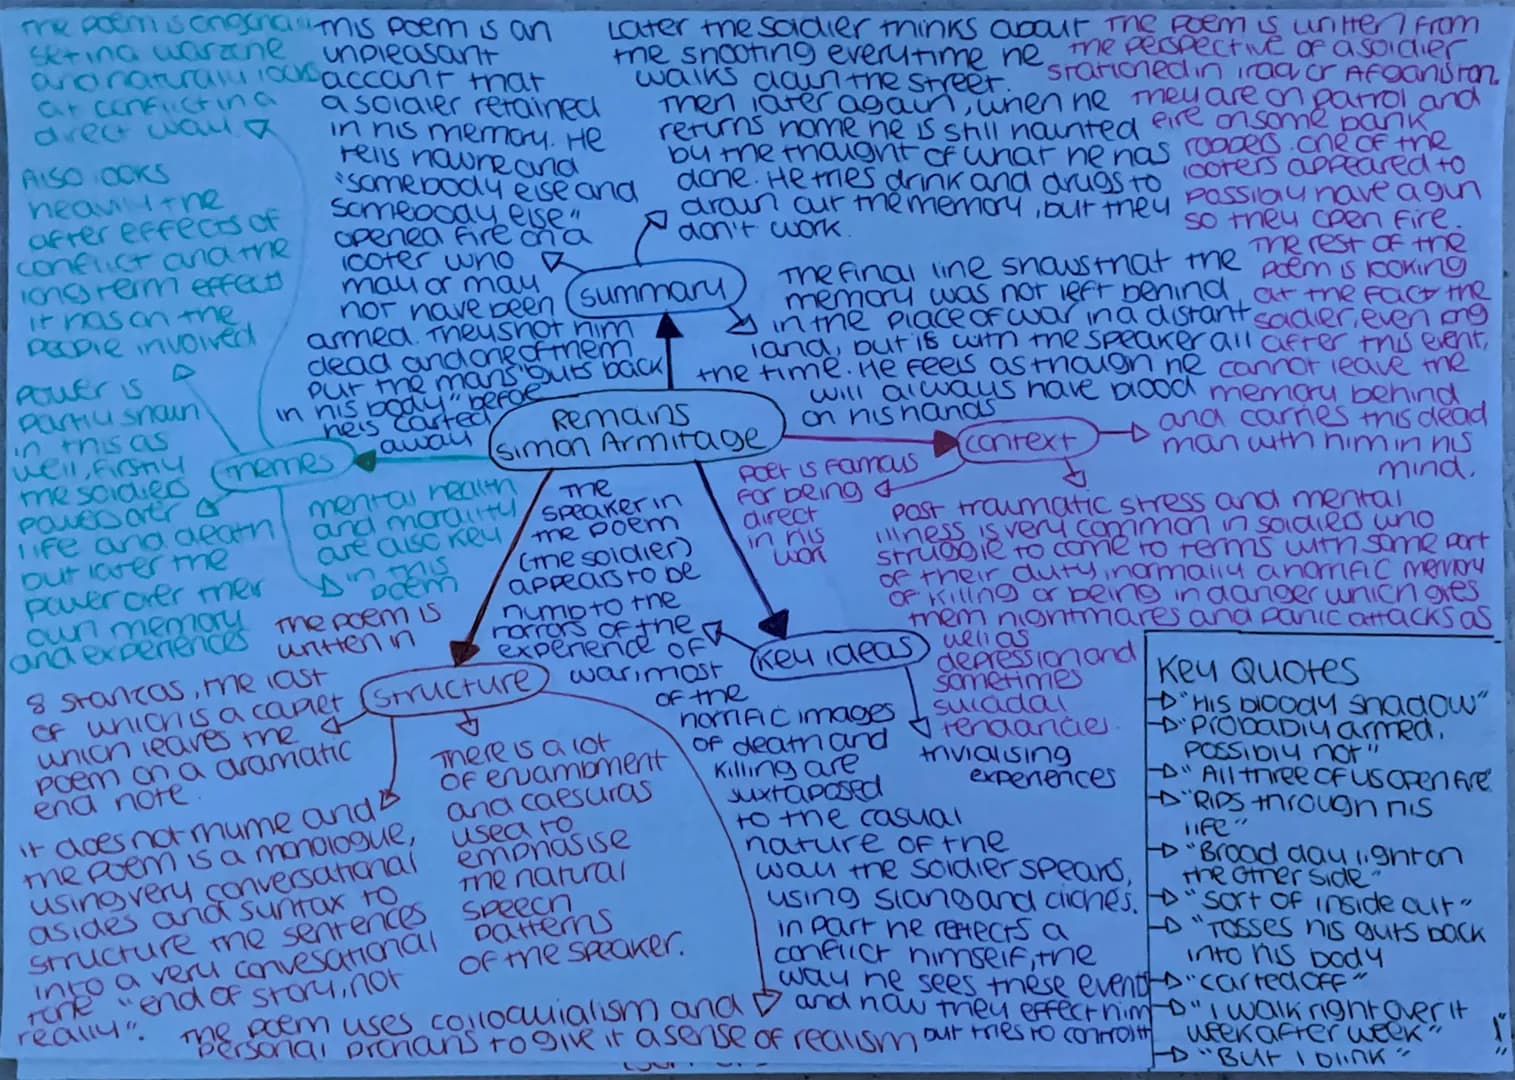 Remains
Simon Armitage
Summary
This poem is an
unpleasant
account that
a soldier retained
in his memory. He
tells how he and
"somebody else and
somebody else"
opened fire on a
looter who
may or may
not have been
armed. They shot him
dead and one of them
put the mans "guts back
in his body" before
he is carted
away
Later the soldier thinks about
the shooting everytime he
walks down the street.
Then later again, when he
returns home he is still haunted
by the thought of what he has
done. He tries drink and drugs to
drown out the memory, but they
don't work.
The final line shows that the
memory was not left behind
in the place of war in a distant
land, but is with the speaker all
the time. He feels as though he
will always have blood
on his hands
Context
The poem is written from
the perspective of a soldier
stationed in Iraq or Afganistan.
They are on patrol and
fire on some bank
robbers. One of the
looters appeared to
possibly have a gun
so they open fire.
The rest of the
poem is looking
at the fact the
soldier, even long
after this event,
cannot leave the
memory behind
and carries this dead
man with him in his
mind.
poet is famous
for being
direct
in his
work
Post traumatic stress and mental
illness is very common in soldiers who
struggle to come to terms with some part
of their duty, normally a horrific memory
of killing or being in danger which gives
them nightmares and panic attacks as
well as
depression and
sometimes
suicidal
tendancies.
Themes
The poem is
set in a warzone
and naturally looks
at conflict in a
direct way.
Also looks
heavily the
after effects of
conflict and the
long term effects
it has on the
people involved
Power is
partly shown
in this as
well, firstly
the soldiers
powers over
life and death
but later the
power over their
own memory
and experiences
mental health
and morality
are also key
in this
poem
Structure
The poem is
written in
8 stanzas, the last
of which is a couplet
which leaves the
poem on a dramatic
end note.
It does not rhyme and
the poem is a monologue,
using very conversational
asides and syntax to
structure the sentences
into a very convesational
tone "end of story, not
really".
There is a lot
of enjambment
and caesuras
used to
emphasise
the natural
speech
patterns
of the speaker.
The poem uses colloquialism and
personal pronouns to give it a sense of realism
Key ideas
The
speaker in
the poem
(the soldier)
appears to be
numb to the
horrors of the
experience of
war, most
of the
horrific images
of death and
killing are
juxtaposed
to the casual
nature of the
way the soldier speaks,
using slang and cliches.
in part he reflects a
conflict himself, the
way he sees these event
and how they effect him
but tries to control it
trivialising
experiences
Key Quotes
"His bloody shadow"
"Probably armed,
possibly not"
"All three of us open fire"
"Rips through his
life"
"Broad daylight on
the other side"
"Sort of inside out"
"Tosses his guts back
into his body
"carted off"
"I walk right over it
week after week"
"But I blink"